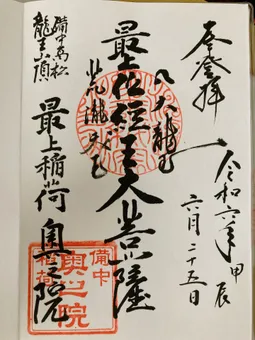 登拝
令和六年 甲辰
六月二十五日
八大龍王
最上位経王大菩薩
備中高松
龍王山頂
最上稲荷 奥之院
備中
奥之院
稲荷